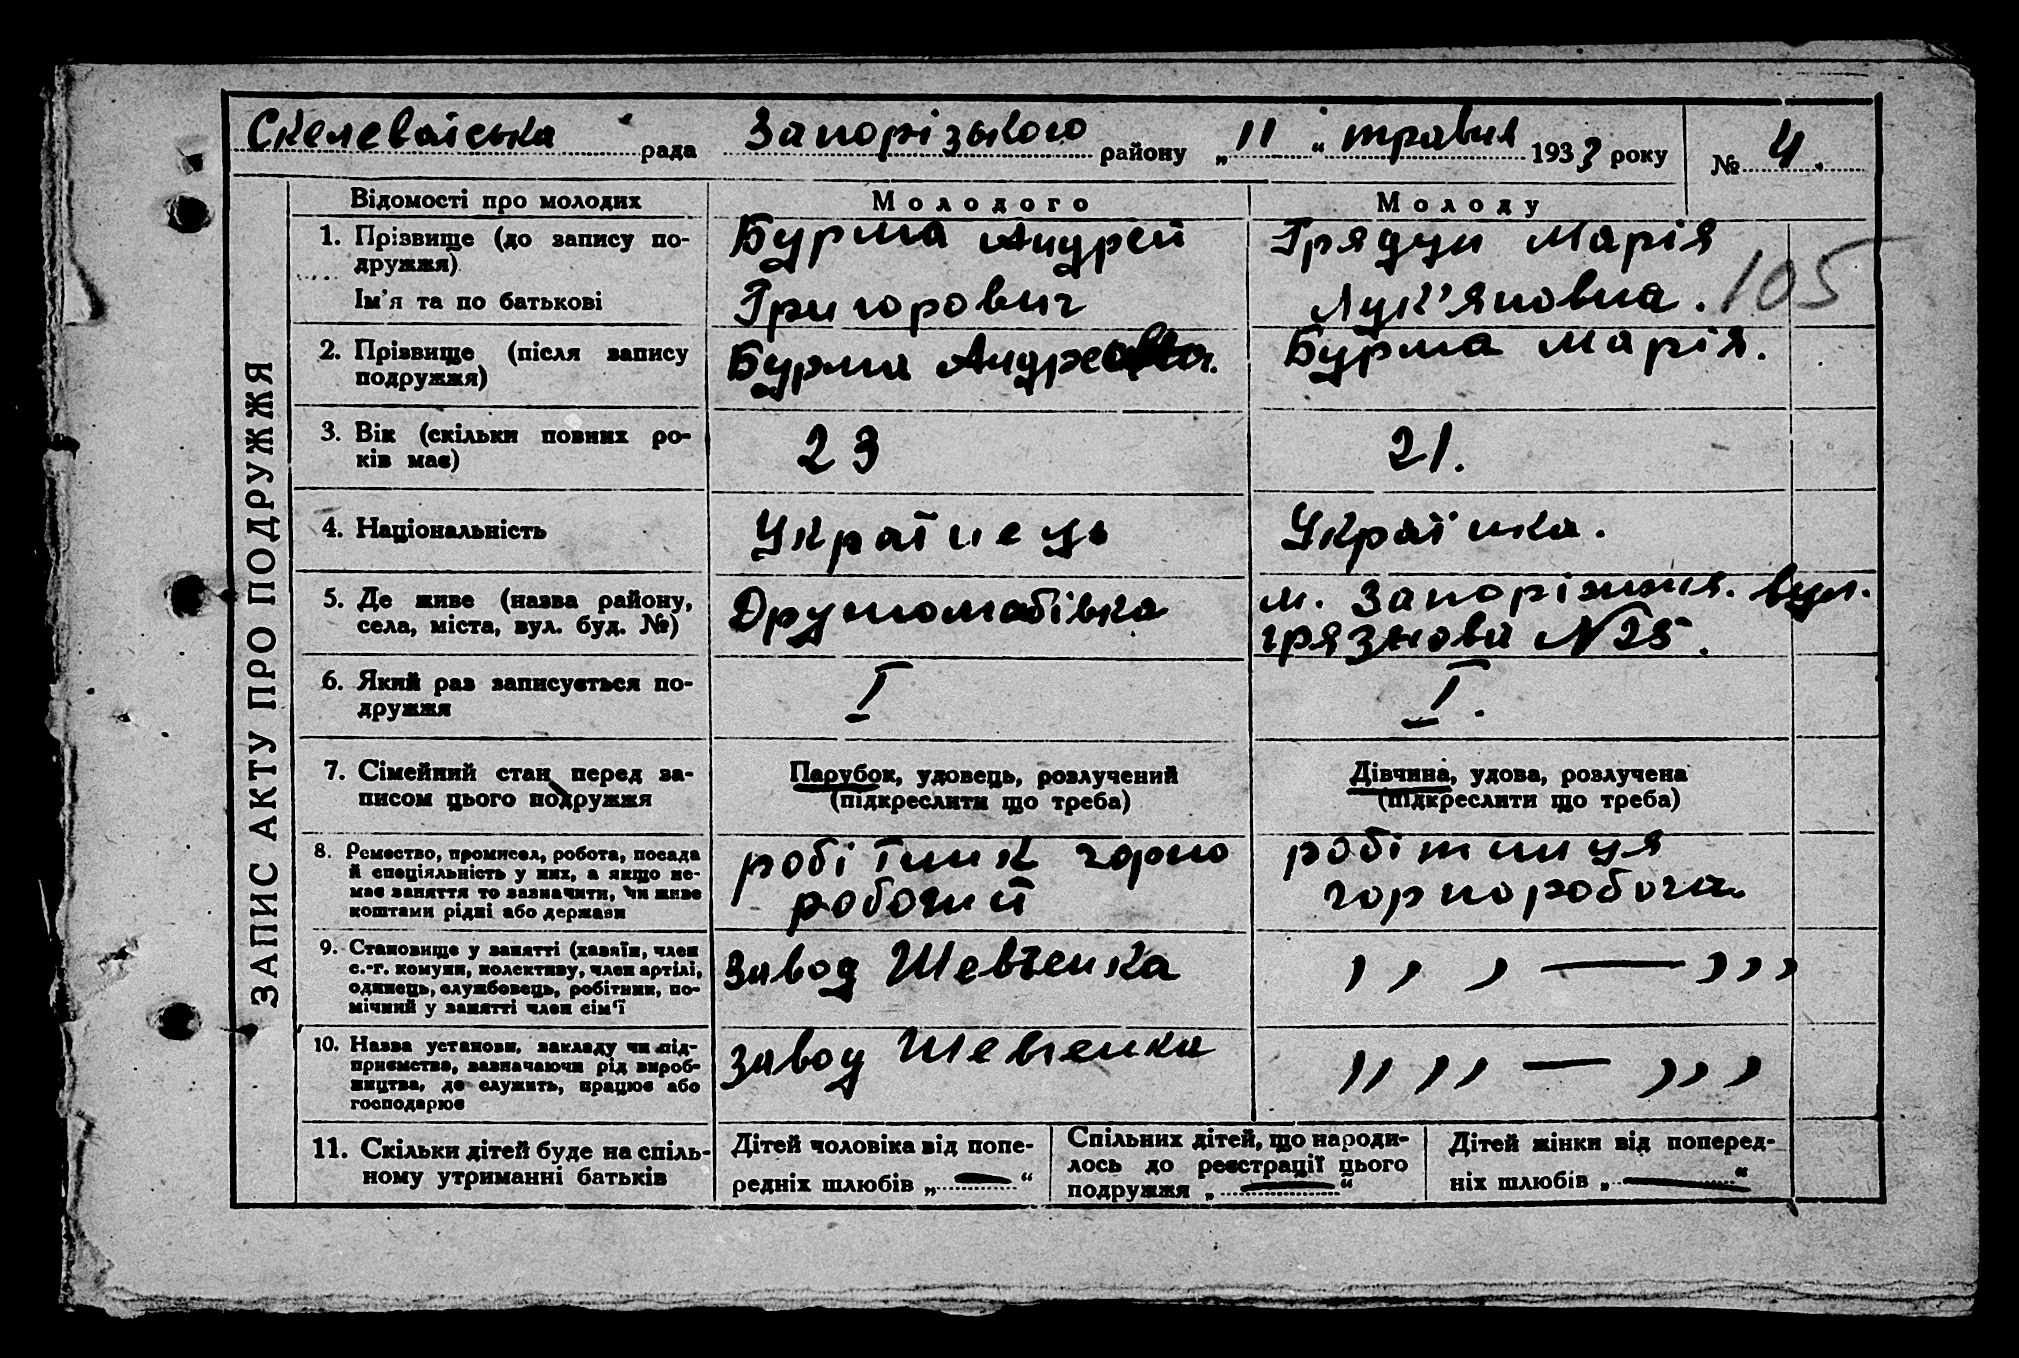 Скелеватська рада Запорізького району „11“ травня 1933 року № 4.
ЗАПИС АКТУ ПРО ПОДРУЖЖЯ
Відомості про молодих
Молодого
Молоду
1. Прізвище (до запису по-
дружжя)
Ім'я та по батькові
Бурма Андрей
Григорович
Грядун Марія
Лук'яновна.
105
2. Прізвище (після запису
подружжя)
Бурма
Бурма Марія.
3. Вік (скільки повних ро-
ків має)
23
21.
4. Національність
Українець
Українка.
5. Де живе (назва району,
села, міста, вул. буд. №)
м. Запоріжжя. вул.
грязнова №25.
6. Який раз записується по-
дружжя
I
I.
7. Сімейний стан перед за-
писом цього подружжя
Парубок, удовець, розлучений
(підкреслити що треба)
Дівчина, удова, розлучена
(підкреслити що треба)
8. Ремество, промисел, робота, посада
й спеціяльність у них, а якщо не-
має заняття то зазначити, чи живе
коштами рідні або держави
робітник чорно
робочий
робітниця
чорноробоча
9. Становище у занятті (хазяїн, член
с.-г. комуни, колективу, член артілі,
одинець, службовець, робітник, по-
мічний у занятті член сім'ї
Завод Шевченка
, , , — , , ,
10. Назва установи, закладу чи під-
приємства, зазначаючи рід вироб-
ництва, де служить, працює або
господарює
Завод Шевченка
,, ,, — , , ,
11. Скільки дітей буде на спіль-
ному утриманні батьків
Дітей чоловіка від попе-
редніх шлюбів „—“
Спільних дітей, що народи-
лось до реєстрації цього
подружжя „—“
Дітей жінки від поперед-
ніх шлюбів „—“